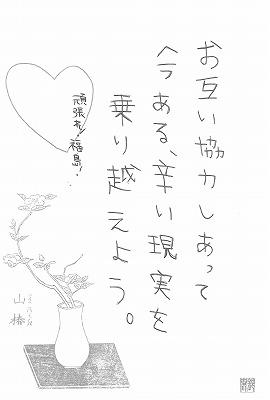 お互い協力しあって
今ある、辛い現実を
乗り越えよう。
頑張ろう!福島!
山椿